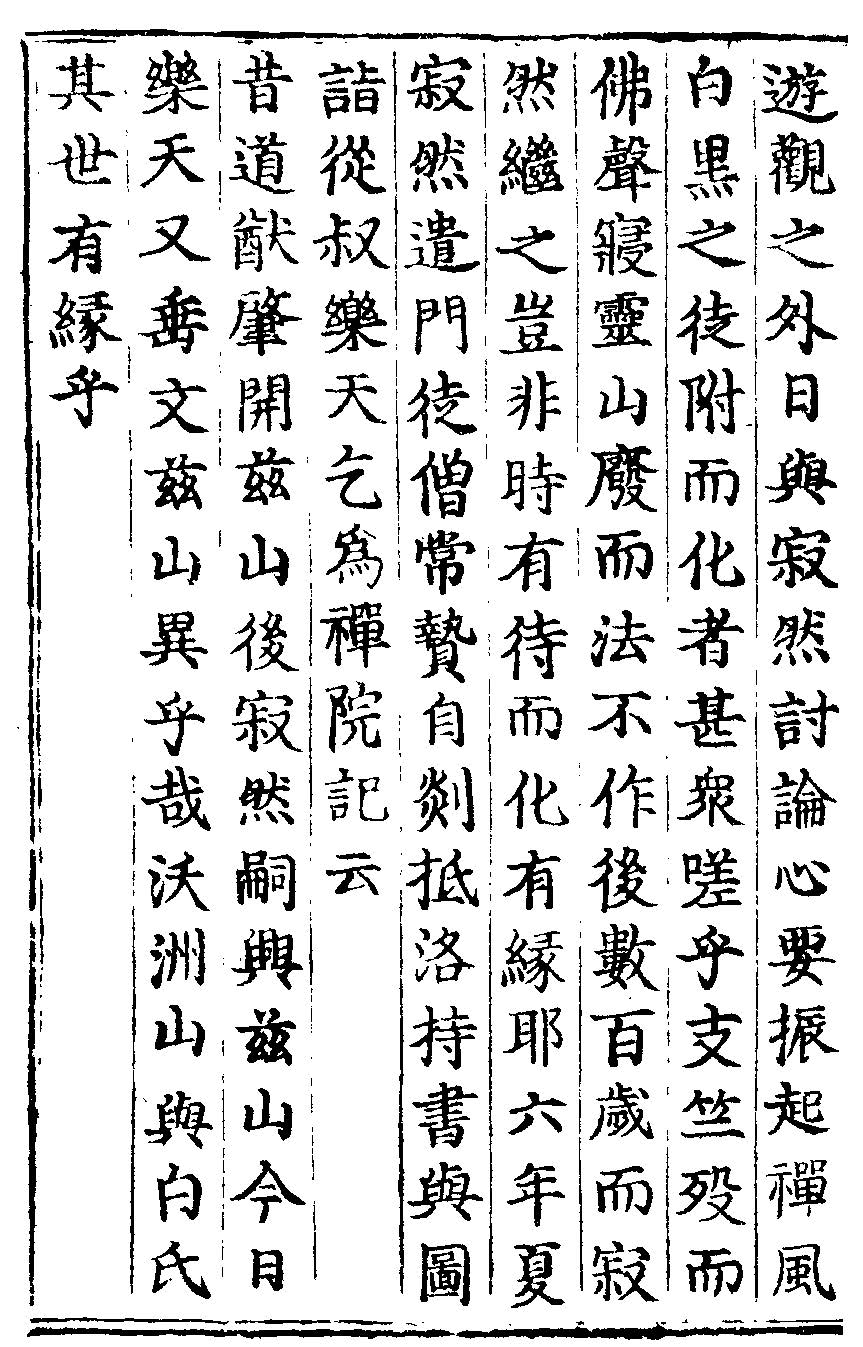 遊觀之外日與寂然討論心要振起禪風
白黒之徒附而化者甚衆嗟乎支竺殁而
佛聲寢靈山廢而法不作後數百歲而寂
然繼之豈非時有待而化有緣耶六年夏
寂然遣門徒僧常贄自剡抵洛持書與圖
詣從叔樂天乞爲禪院記云
昔道猷肇開兹山後寂然嗣興兹山今日
樂天又垂文兹山異乎哉沃洲山與白氏
其世有緣乎